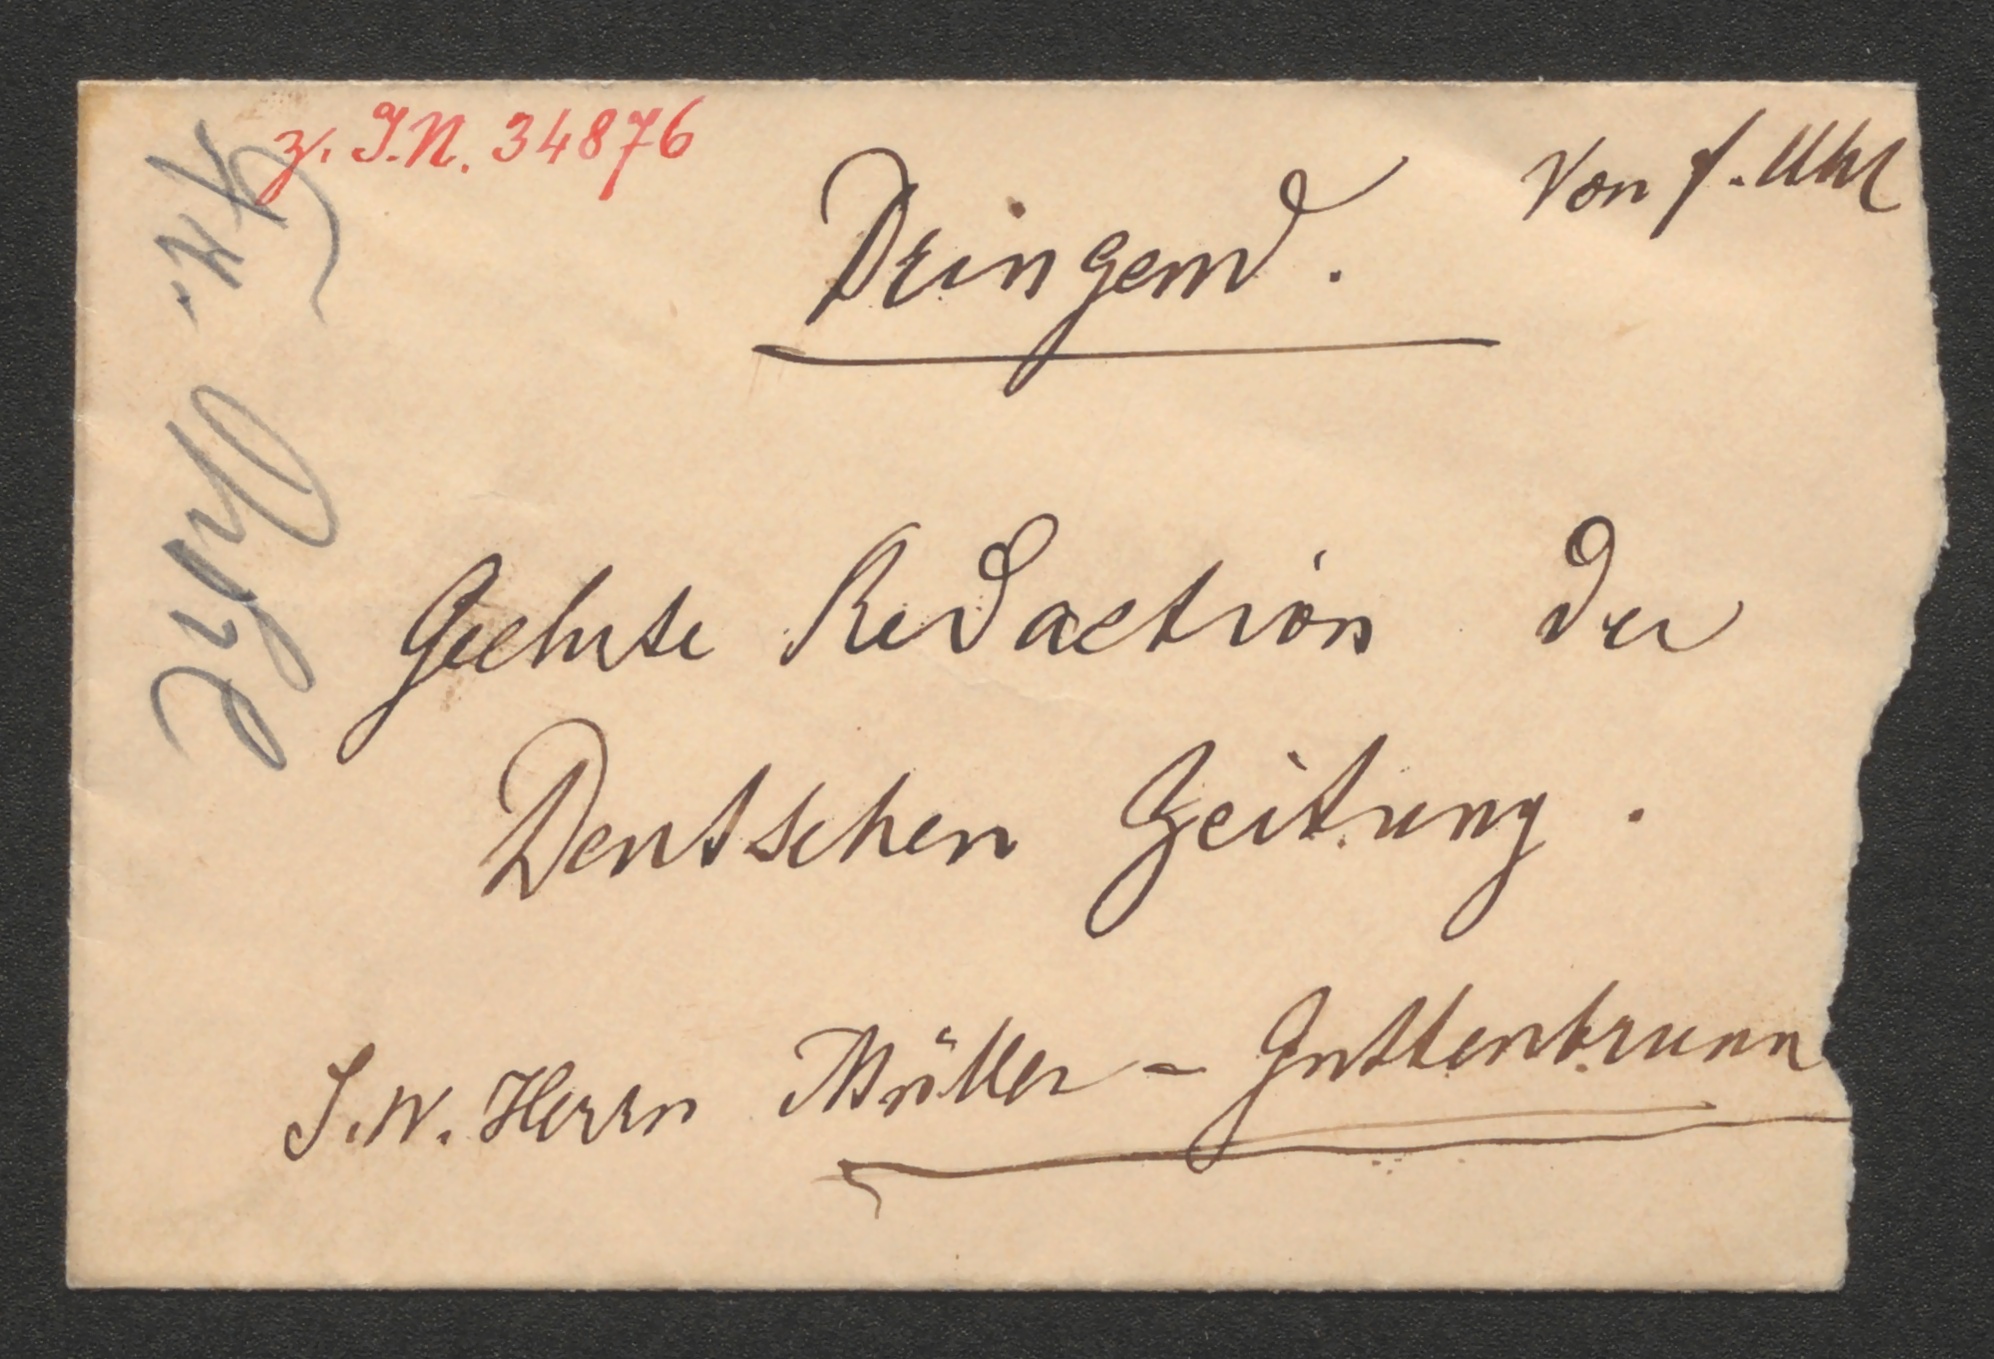 z. I.N. 34876
Von F. Uhl
Dringend.
Geehrte Redaction der
Deutschen Zeitung.
S. W. Herrn Müller - Guttenbrunn
Fr. Uhl